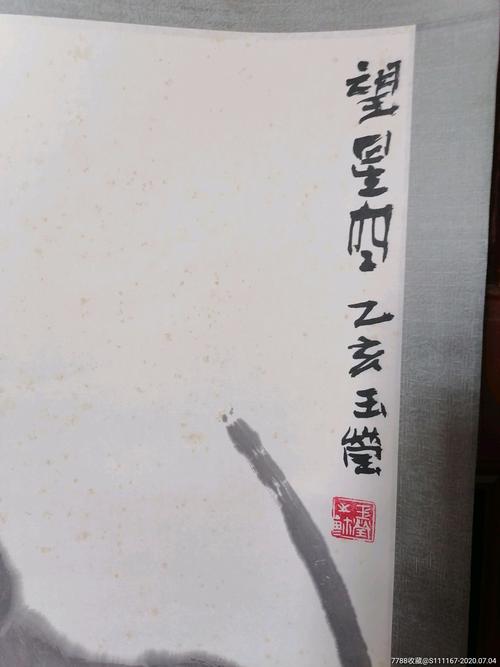 望星空 乙亥玉莹
7788收藏@S111167-2020.07.04